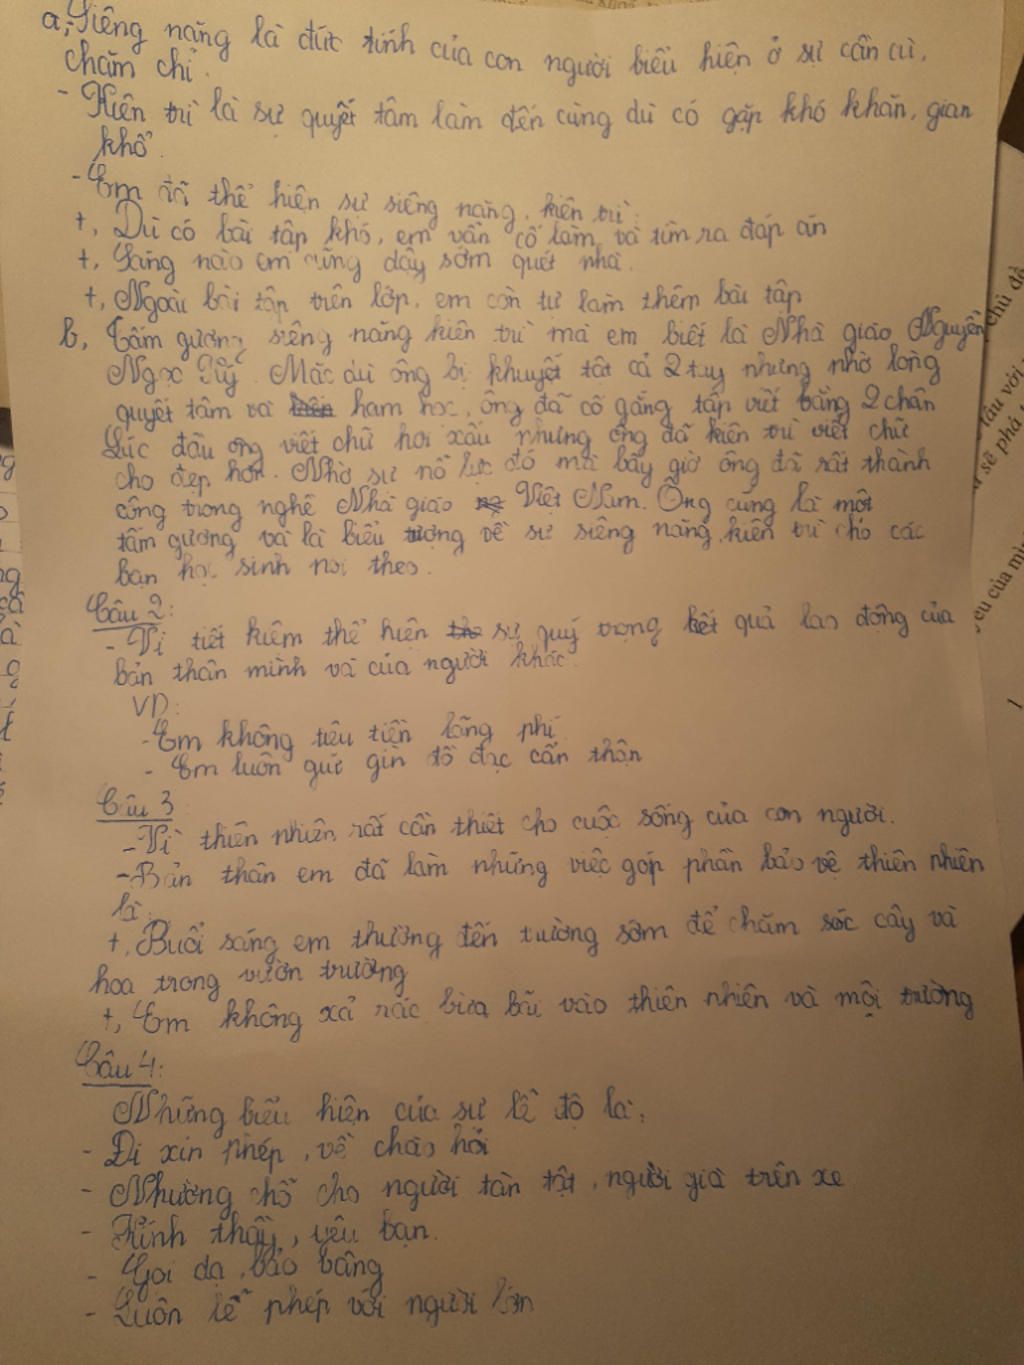 a, Siêng năng là đức tính của con người biểu hiện ở sự cần cù,
chăm chỉ.
- Kiên trì là sự quyết tâm làm đến cùng dù có gặp khó khăn, gian
khổ.
- Em đã thể hiện sự siêng năng, kiên trì:
+, Dù có bài tập khó, em vẫn cố làm và tìm ra đáp án
+, Sáng nào em cũng dậy sớm quét nhà.
+, Ngoài bài tập trên lớp, em còn tự làm thêm bài tập
b, Tấm gương siêng năng kiên trì mà em biết là Nhà giáo Nguyễn
Ngọc Ký. Mặc dù ông bị khuyết tật cả 2 tay nhưng nhờ lòng
quyết tâm và ham học, ông đã cố gắng tập viết bằng 2 chân
Lúc đầu ông viết chữ hơi xấu nhưng ông đã kiên trì viết chữ
cho đẹp hơn. Nhờ sự nỗ lực đó mà bây giờ ông đã rất thành
công trong nghề Nhà giáo Việt Nam. Ông cũng là một
tấm gương và là biểu tượng về sự siêng năng, kiên trì cho các
bạn học sinh noi theo.
Câu 2:
- Vì tiết kiệm thể hiện sự quý trọng kết quả lao động của
bản thân mình và của người khác.
VD:
- Em không tiêu tiền lãng phí
- Em luôn giữ gìn đồ đạc cẩn thận
Câu 3
- Vì thiên nhiên rất cần thiết cho cuộc sống của con người.
- Bản thân em đã làm những việc góp phần bảo vệ thiên nhiên
là:
+, Buổi sáng em thường đến trường sớm để chăm sóc cây và
hoa trong vườn trường
+, Em không xả rác bừa bãi vào thiên nhiên và môi trường
Câu 4:
Những biểu hiện của sự lễ độ là:
- Đi xin phép, về chào hỏi
- Nhường chỗ cho người tàn tật, người già trên xe
- Kính thầy, yêu bạn.
- Gọi dạ, bảo vâng
- Luôn lễ phép với người lớn
chủ đề
lâu với
sẽ phá
yêu của